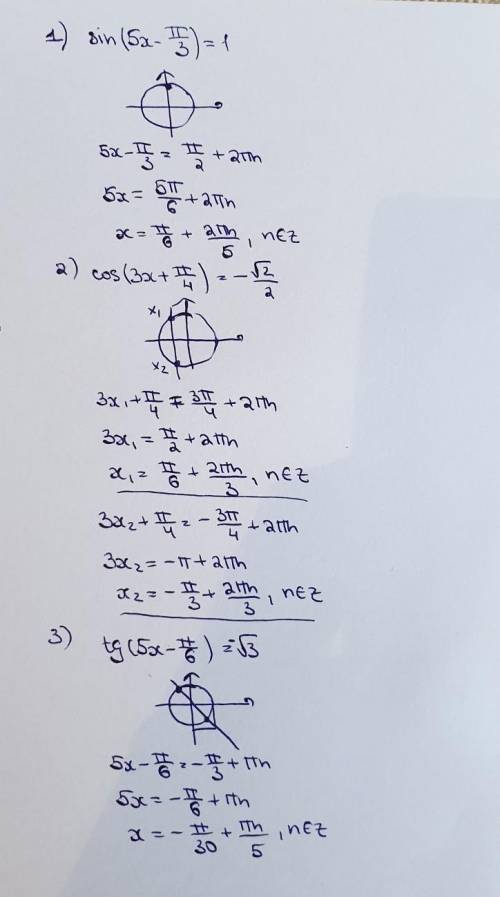 1) sin(5x - π/3) = 1
5x - π/3 = π/2 + 2πn
5x = 5π/6 + 2πn
x = π/6 + 2πn/5, n∈Z
2) cos(3x + π/4) = -√2/2
x₁
x₂
3x₁ + π/4 = 3π/4 + 2πn
3x₁ = π/2 + 2πn
x₁ = π/6 + 2πn/3, n∈Z
3x₂ + π/4 = -3π/4 + 2πn
3x₂ = -π + 2πn
x₂ = -π/3 + 2πn/3, n∈Z
3) tg(5x - π/6) = -√3
5x - π/6 = -π/3 + πn
5x = -π/6 + πn
x = -π/30 + πn/5, n∈Z